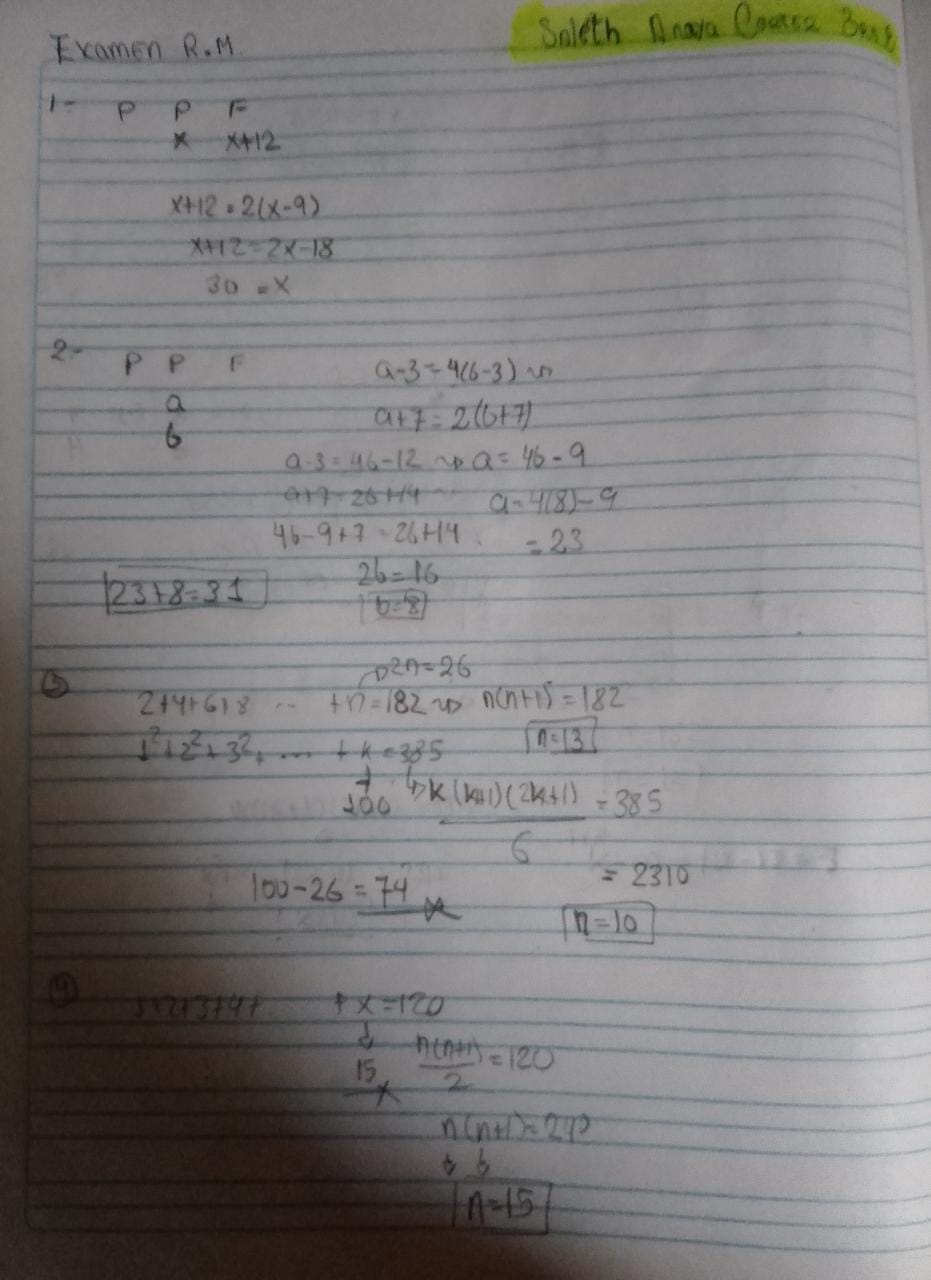 Examen R.M.
1- P P F
x x+12
x+12=2(x-9)
x+12=2x-18
30 =x
2- P P F
a
b
a-3=4(b-3)
a+7=2(b+7)
a-3=4b-12 → a=4b-9
a+7=2b+14
a=4(8)-9
4b-9+7=2b+14
=23
2b=16
23+8=31
b=8
→2n=26
3 2+4+6+8 ... +n=182 → n(n+1)=182
n=13
1²+2²+3²+ ... +k=385
↓
100
↳ k(k+1)(2k+1) =385
6
= 2310
100-26=74
n=10
4 1+2+3+4+ +x=120
↓
15
n(n+1) =120
2
n(n+1)=240
↓ ↓
n=15